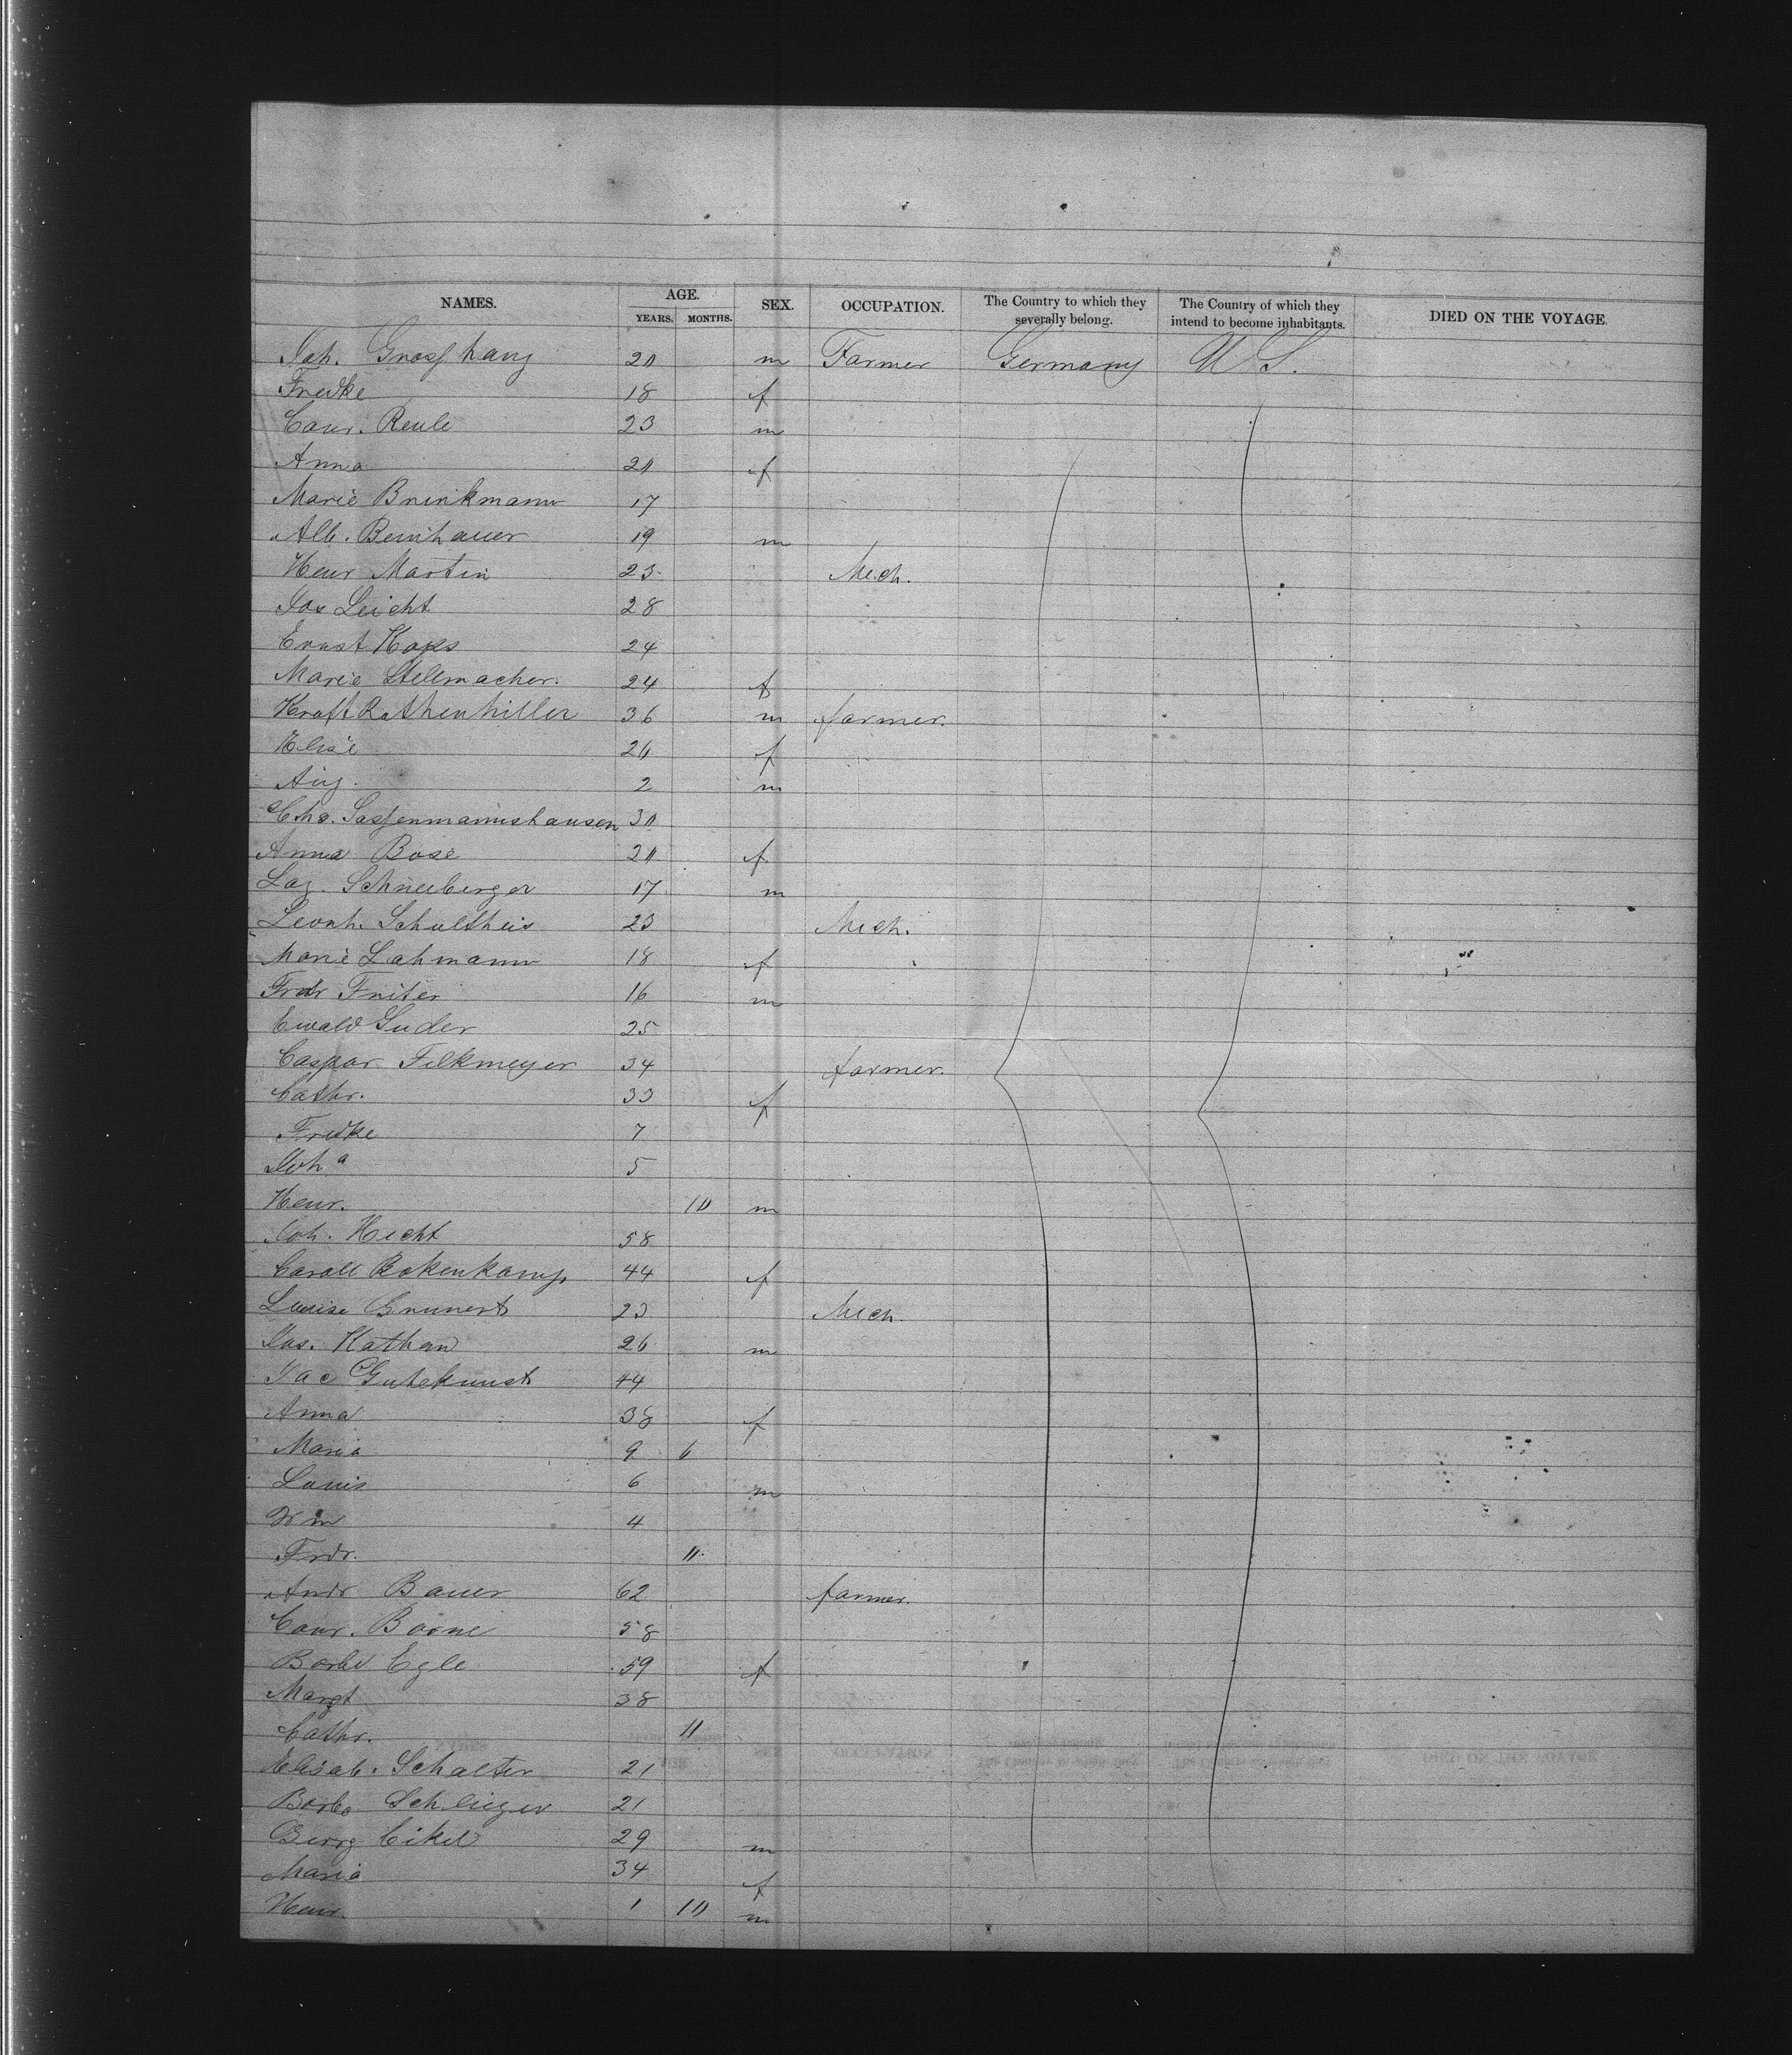 NAMES. AGE. SEX. OCCUPATION. The Country to which they severally belong. The Country of which they intend to become inhabitants. DIED ON THE VOYAGE.
YEARS. MONTHS.
Joh. Grosshans 20 m Farmer Germany U S.
Fredke 18 f
Conr. Reule 23 m
Anna 20 f
Marie Brinkmann 17
Alb. Beinhauer 19 m
Henr Martin 23 Mech.
Jos Leicht 28
Ernst Kops 24
Marie Stellmacher. 24 f
Kraft Rothenhiller 36 m farmer.
Elise 20 f
Aug. 2 m
Chs. Sassenmannshausen 30
Anna Bose 20 f
Laz. Schneeberger 17 m
Leonh. Schultheis 23 Mech.
Marie Lahmann 18 f
Fredr Friter 16 m
Ewald Luder 25
Caspar Filkmeyer 34 farmer.
Cathr. 33 f
Fredke 7
Joh a 5
Henr. 10 m
Joh. Hecht 58
Caroll Rokenkamp 44 f
Louise Grunert 23 Mech.
Jos. Kathan 26 m
Jac Gutekunst 44
Anna 38 f
Maria 9 6
Louis 6 m
Wm 4
Frdr. 11
Andr Bauer 62 farmer.
Conr. Borne 58
Barbe Egle 59 f
Margt 38
Cathr. 11
Elisab. Schalter 21
Barba Schlieger 21
Georg Eikel 29 m
Maria 34 f
Henr. 1 10 m